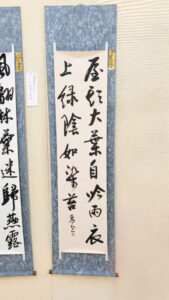 屋頭大葉自吟雨衣
上緑陰如染苔
風翻林葉迷歸燕露